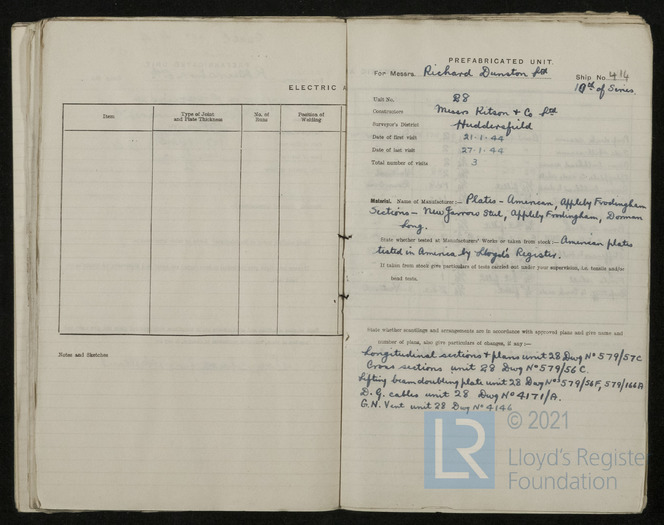 ELECTRIC A
Item
Type of Joint
and Plate Thickness
No. of
Runs
Position of
Welding
Notes and Sketches
PREFABRICATED UNIT.
For Messrs. Richard Dunston Ltd
Ship No. 414
19th of Series.
Unit No. 28
Constructors Messrs Ritson & Co Ltd
Surveyor's District Huddersfield
Date of first visit 21-1-44
Date of last visit 27-1-44
Total number of visits 3
Material. Name of Manufacturer:— Plates - American, Appleby Frodingham
Sections - New Jarrow Steel, Appleby Frodingham, Dorman
Long.
State whether tested at Manufacturers' Works or taken from stock:— American plates
tested in America by Lloyd's Register.
If taken from stock give particulars of tests carried out under your supervision, i.e. tensile and/or
bend tests.
State whether scantlings and arrangements are in accordance with approved plans and give name and
number of plans, also give particulars of changes, if any:—
Longitudinal sections & plans unit 28 Dwg No 579/57C
Cross sections unit 28 Dwg No 579/56C.
Lifting beam doubling plate unit 28 Dwg No 579/56F, 579/166A
D.G. cables unit 28 Dwg No 4171/A.
G.N. Vent unit 28 Dwg No 4146
LR
© 2021
Lloyd's Register
Foundation